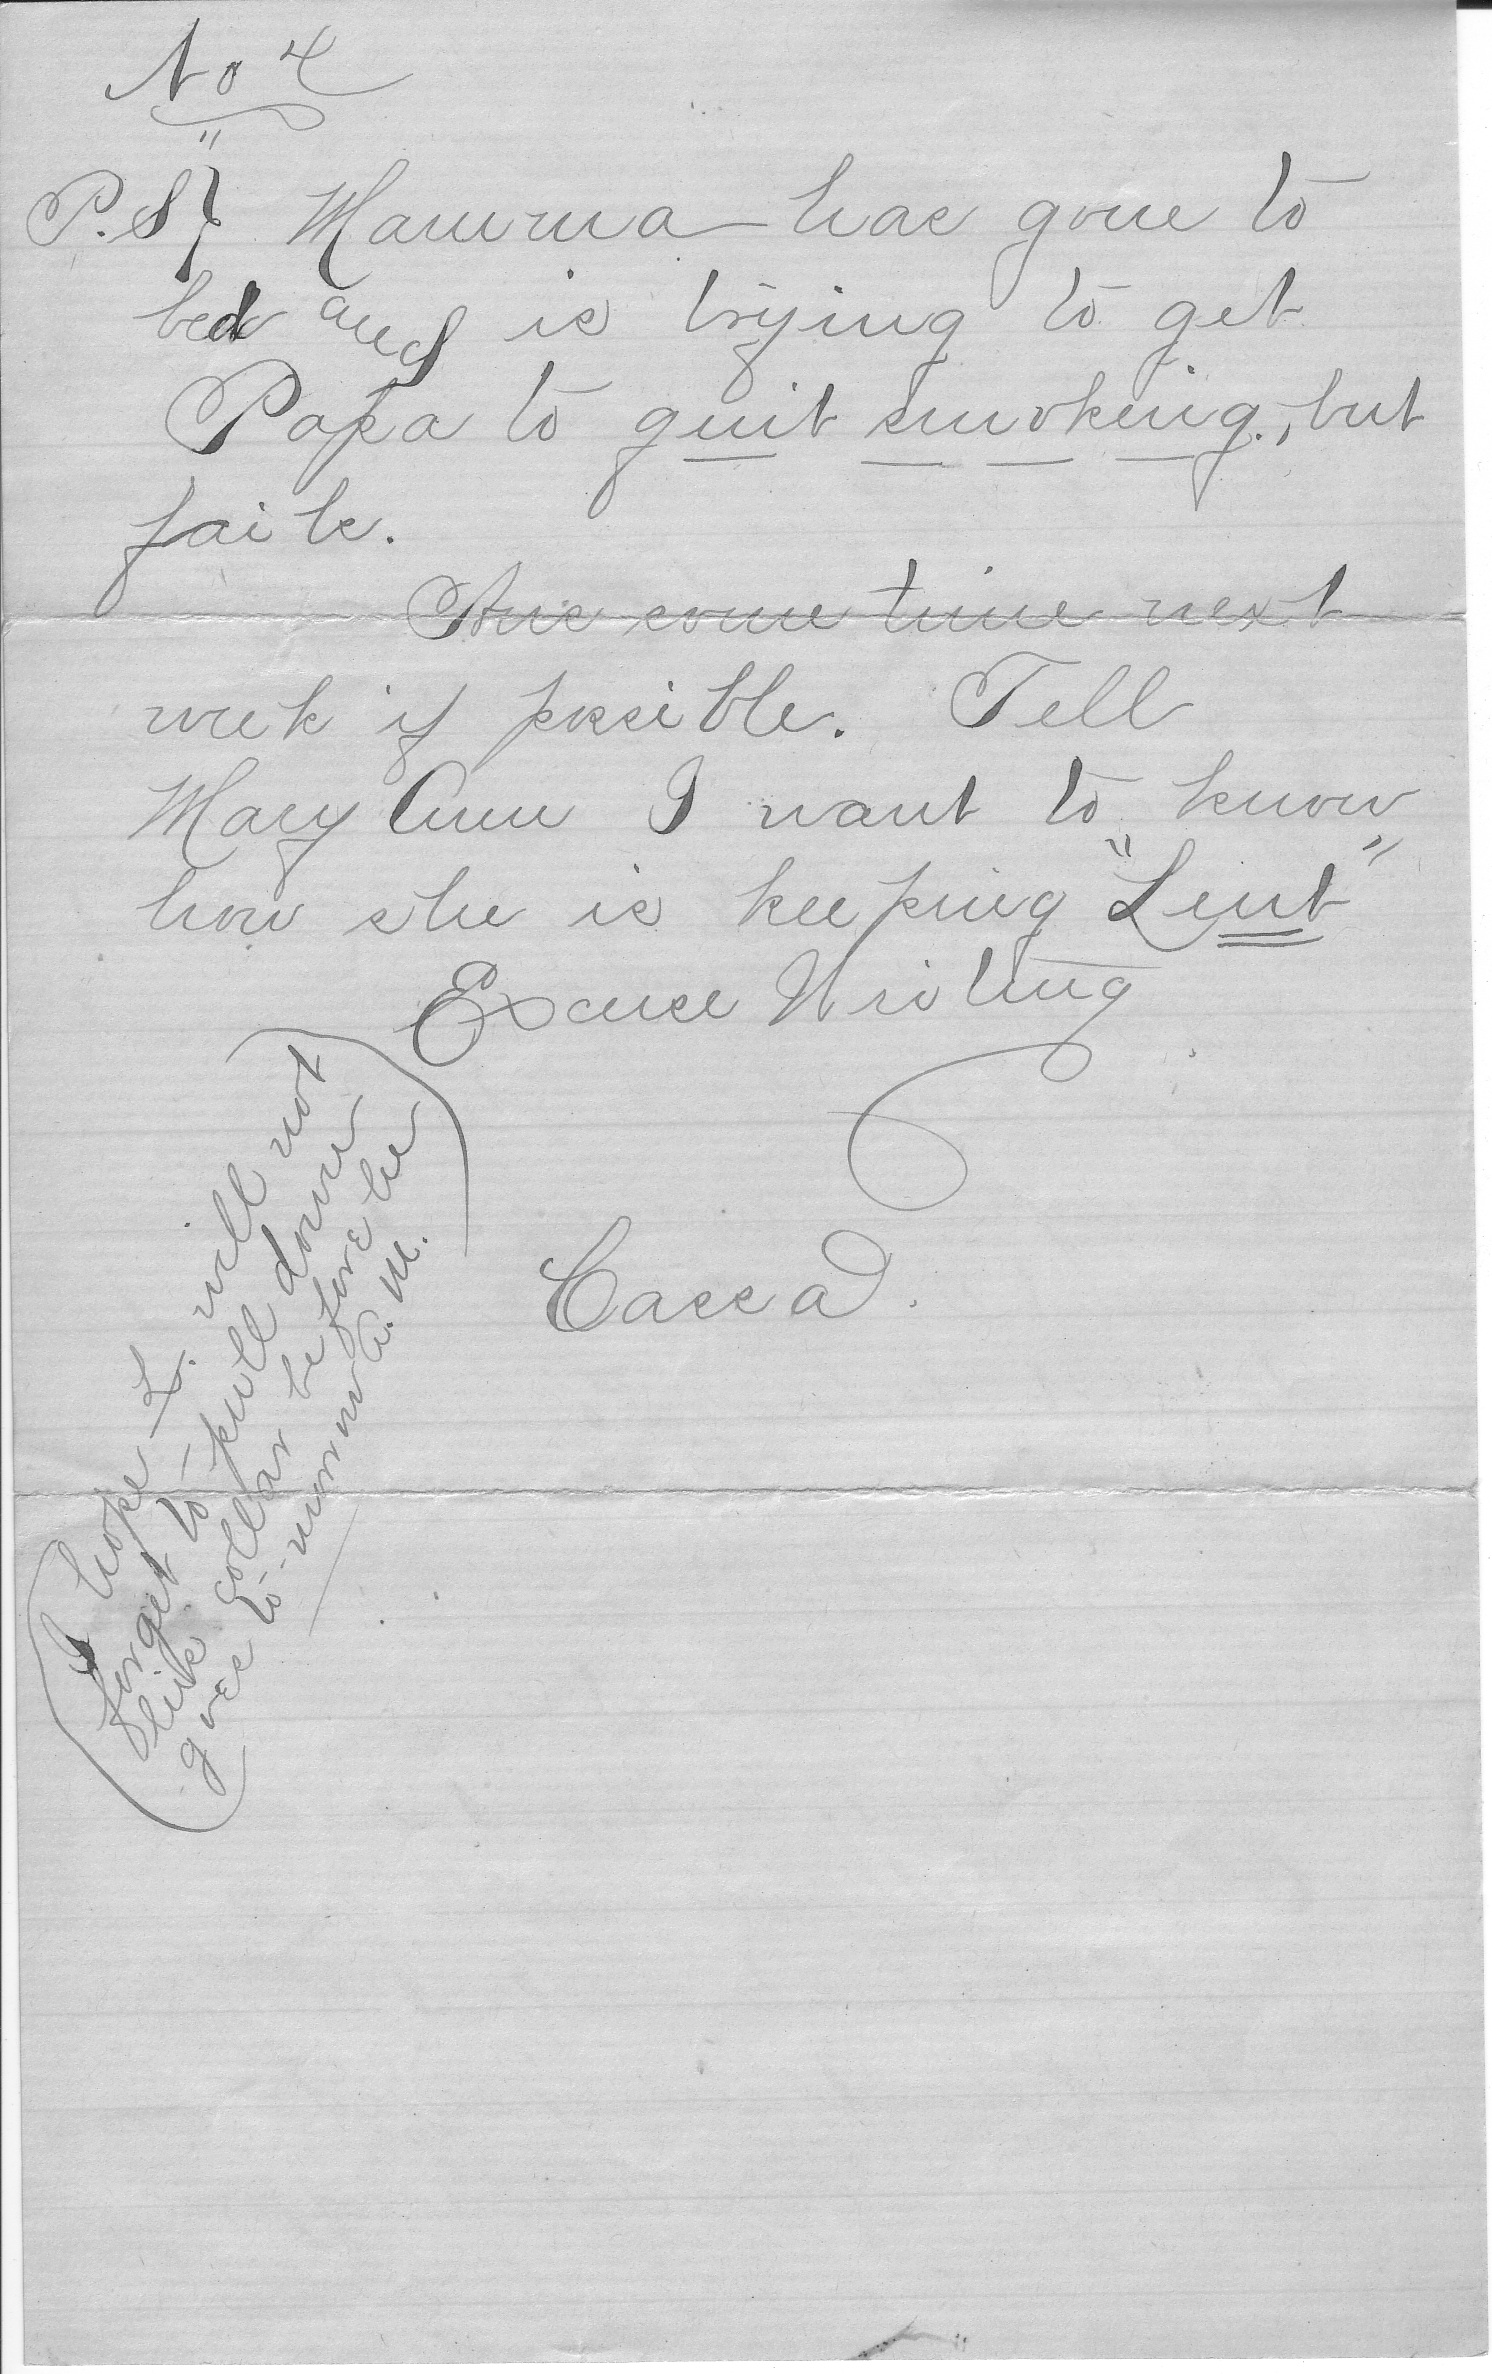 No 4
P.S. Mamma has gone to
bed and is trying to get
Papa to quit smoking, but
fails.
Ans some time next
week if possible. Tell
Mary Ann I want to know
how she is keeping "Lent"
Excuse Writing
Cassad.
(I hope L. will not
forget to pull down
his collar before he
goes to-morrow A.M.)